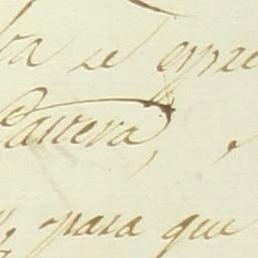 se expre
Carrera,
para que